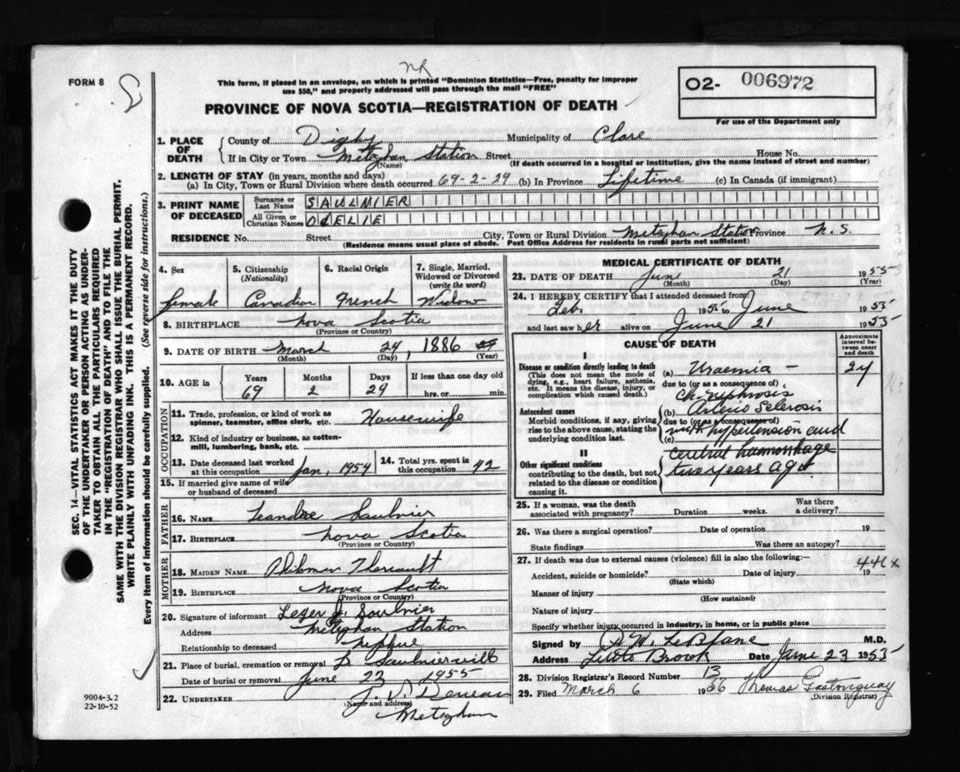 FORM 8
NR
This form, if placed in an envelope, on which is printed "Dominion Statistics—Free, penalty for improper
use $50," and properly addressed will pass through the mail "FREE"
PROVINCE OF NOVA SCOTIA—REGISTRATION OF DEATH
O2- 006972
For use of the Department only
SEC. 14—VITAL STATISTICS ACT MAKES IT THE DUTY
OF THE UNDERTAKER OR PERSON ACTING AS UNDER-
TAKER TO OBTAIN ALL THE PARTICULARS REQUIRED
IN THE "REGISTRATION OF DEATH" AND TO FILE THE
SAME WITH THE DIVISION REGISTRAR WHO SHALL ISSUE THE BURIAL PERMIT.
WRITE PLAINLY WITH UNFADING INK. THIS IS A PERMANENT RECORD.
Every item of information should be carefully supplied. (See reverse side for instructions.)
1. PLACE OF DEATH
County of Digby Municipality of Clare
If in City or Town Meteghan Station Street House No.
(Name) (If death occurred in a hospital or institution, give the name instead of street and number)
2. LENGTH OF STAY (in years, months and days)
(a) In City, Town or Rural Division where death occurred 69-2-29 (b) In Province Lifetime (c) In Canada (if immigrant)
3. PRINT NAME OF DECEASED
Surname or Last Name SAULNIER
All Given or Christian Names ODELIE
RESIDENCE No. Street City, Town or Rural Division Meteghan Station Province N.S.
(Residence means usual place of abode. Post Office Address for residents in rural parts not sufficient)
4. Sex
female
5. Citizenship (Nationality)
Canadian
6. Racial Origin
French
7. Single, Married, Widowed or Divorced (write the word)
Widow
8. BIRTHPLACE Nova Scotia
(Province or Country)
9. DATE OF BIRTH March 24, 1886
(Month) (Day) (Year)
10. AGE in Years Months Days If less than one day
69 2 29 hrs. or min.
OCCUPATION
11. Trade, profession, or kind of work as
spinner, teamster, office clerk, etc. Housewife
12. Kind of industry or business, as cotton-
mill, lumbering, bank, etc.
13. Date deceased last worked
at this occupation Jan, 1954
14. Total yrs. spent in
this occupation 42
15. If married give name of wife
or husband of deceased
FATHER
16. NAME Leandre Saulnier
17. BIRTHPLACE Nova Scotia
(Province or Country)
MOTHER
18. MAIDEN NAME Philomen Theriault
19. BIRTHPLACE Nova Scotia
(Province or Country)
20. Signature of informant Leger J. Saulnier
Address Meteghan Station
Relationship to deceased Nephue
21. Place of burial, cremation or removal Saulnierville
Date of burial or removal June 23 1955
22. UNDERTAKER J. V. Deveau
(Name and address)
Meteghan
9004-3.2
22-10-52
MEDICAL CERTIFICATE OF DEATH
23. DATE OF DEATH June 21 1955
(Month) (Day) (Year)
24. I HEREBY CERTIFY that I attended deceased from
Feb. 1955 to June 1955
and last saw her alive on June 21 1955
CAUSE OF DEATH
Approximate interval between onset and death
I
Disease or condition directly leading to death
(This does not mean the mode of
dying, e.g., heart failure, asthenia,
etc. It means the disease, injury, or
complication which caused death.)
(a) Uraemia - 2y
due to (or as a consequence of)
Ch. nephrosis
Antecedent causes
Morbid conditions, if any, giving
rise to the above cause, stating the
underlying condition last.
(b) Arterio Sclerosis
due to (or as a consequence of)
with hypertension and
(c)
cerebral haemorrhage
two years ago
II
Other significant conditions
contributing to the death, but not
related to the disease or condition
causing it.
25. If a woman, was the death
associated with pregnancy? Duration weeks. Was there
a delivery?
26. Was there a surgical operation? Date of operation 19
State findings Was there an autopsy?
27. If death was due to external causes (violence) fill in also the following:—
446x
Accident, suicide or homicide? Date of injury 19
(State which)
Manner of injury
(How sustained)
Nature of injury
Specify whether injury occurred in industry, in home, or in public place
Signed by LeBlanc M.D.
Address Little Brook Date June 23 1955
28. Division Registrar's Record Number 13
29. Filed March 6 1956 Thomas Gastonguay
(Division Registrar)